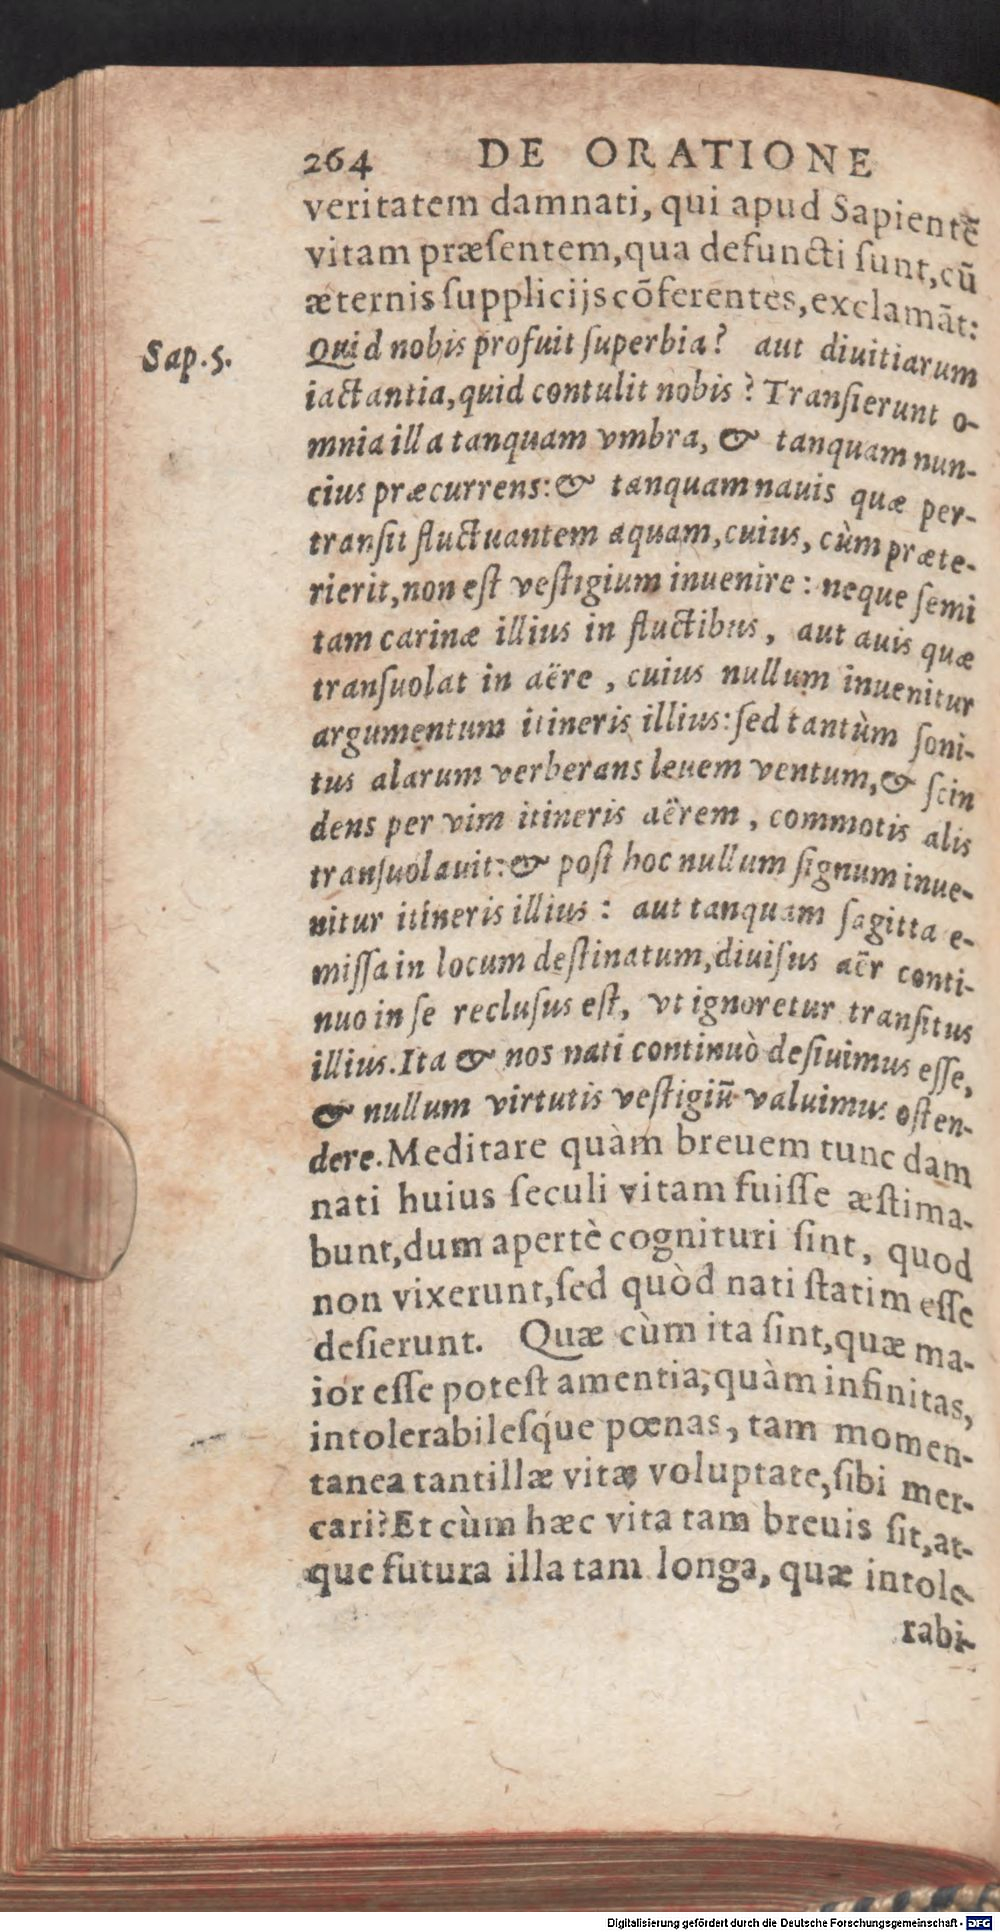 264 DE ORATIONE
veritatem damnati, qui apud Sapientẽ
vitam præſentem, qua defuncti ſunt, cũ
æternis ſupplicijs cõferentes, exclamãt:
Sap. 5.
Quid nobis profuit ſuperbia? aut diuitiarum
iactantia, quid contulit nobis? Tranſierunt o-
mnia illa tanquam vmbra, & tanquam nun-
cius præcurrens: & tanquam nauis quæ per-
tranſit fluctuantem aquam, cuius, cùm præte-
rierit, non eſt veſtigium inuenire: neque ſemi
tam carinæ illius in fluctibus, aut auis quæ
tranſuolat in aëre, cuius nullum inuenitur
argumentum itineris illius: ſed tantùm ſoni-
tus alarum verberans leuem ventum, & ſcin
dens per vim itineris aërem, commotis alis
tranſuolauit: & poſt hoc nullum ſignum inue-
nitur itineris illius: aut tanquam ſagitta e-
miſſa in locum deſtinatum, diuiſus aër conti-
nuo in ſe recluſus eſt, vt ignoretur tranſitus
illius. Ita & nos nati continuò deſiuimus eſſe,
& nullum virtutis veſtigiũ valuimus oſten-
dere. Meditare quàm breuem tunc dam
nati huius ſeculi vitam fuiſſe æſtima-
bunt, dum apertè cognituri ſint, quod
non vixerunt, ſed quòd nati ſtatim eſſe
deſierunt. Quæ cùm ita ſint, quæ ma-
ior eſſe poteſt amentia, quàm infinitas,
intolerabileſq́ue pœnas, tam momen-
tanea tantillæ vitæ voluptate, ſibi mer-
cari? Et cùm hæc vita tam breuis ſit, at-
que futura illa tam longa, quæ intole-
rabi-
Digitalisierung gefördert durch die Deutsche Forschungsgemeinschaft - DFG